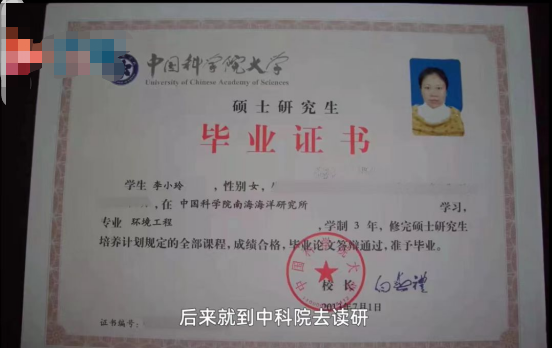 中国科学院大学
University of Chinese Academy of Sciences
硕士研究生
毕业证书
学生 李小玲 ,性别 女,
,在 中国科学院南海海洋研究所 学习,
专业 环境工程 ,学制 3 年,修完硕士研究生
培养计划规定的全部课程,成绩合格,毕业论文答辩通过,准予毕业。
校 长
月1日
证书编号:
后来就到中科院去读研